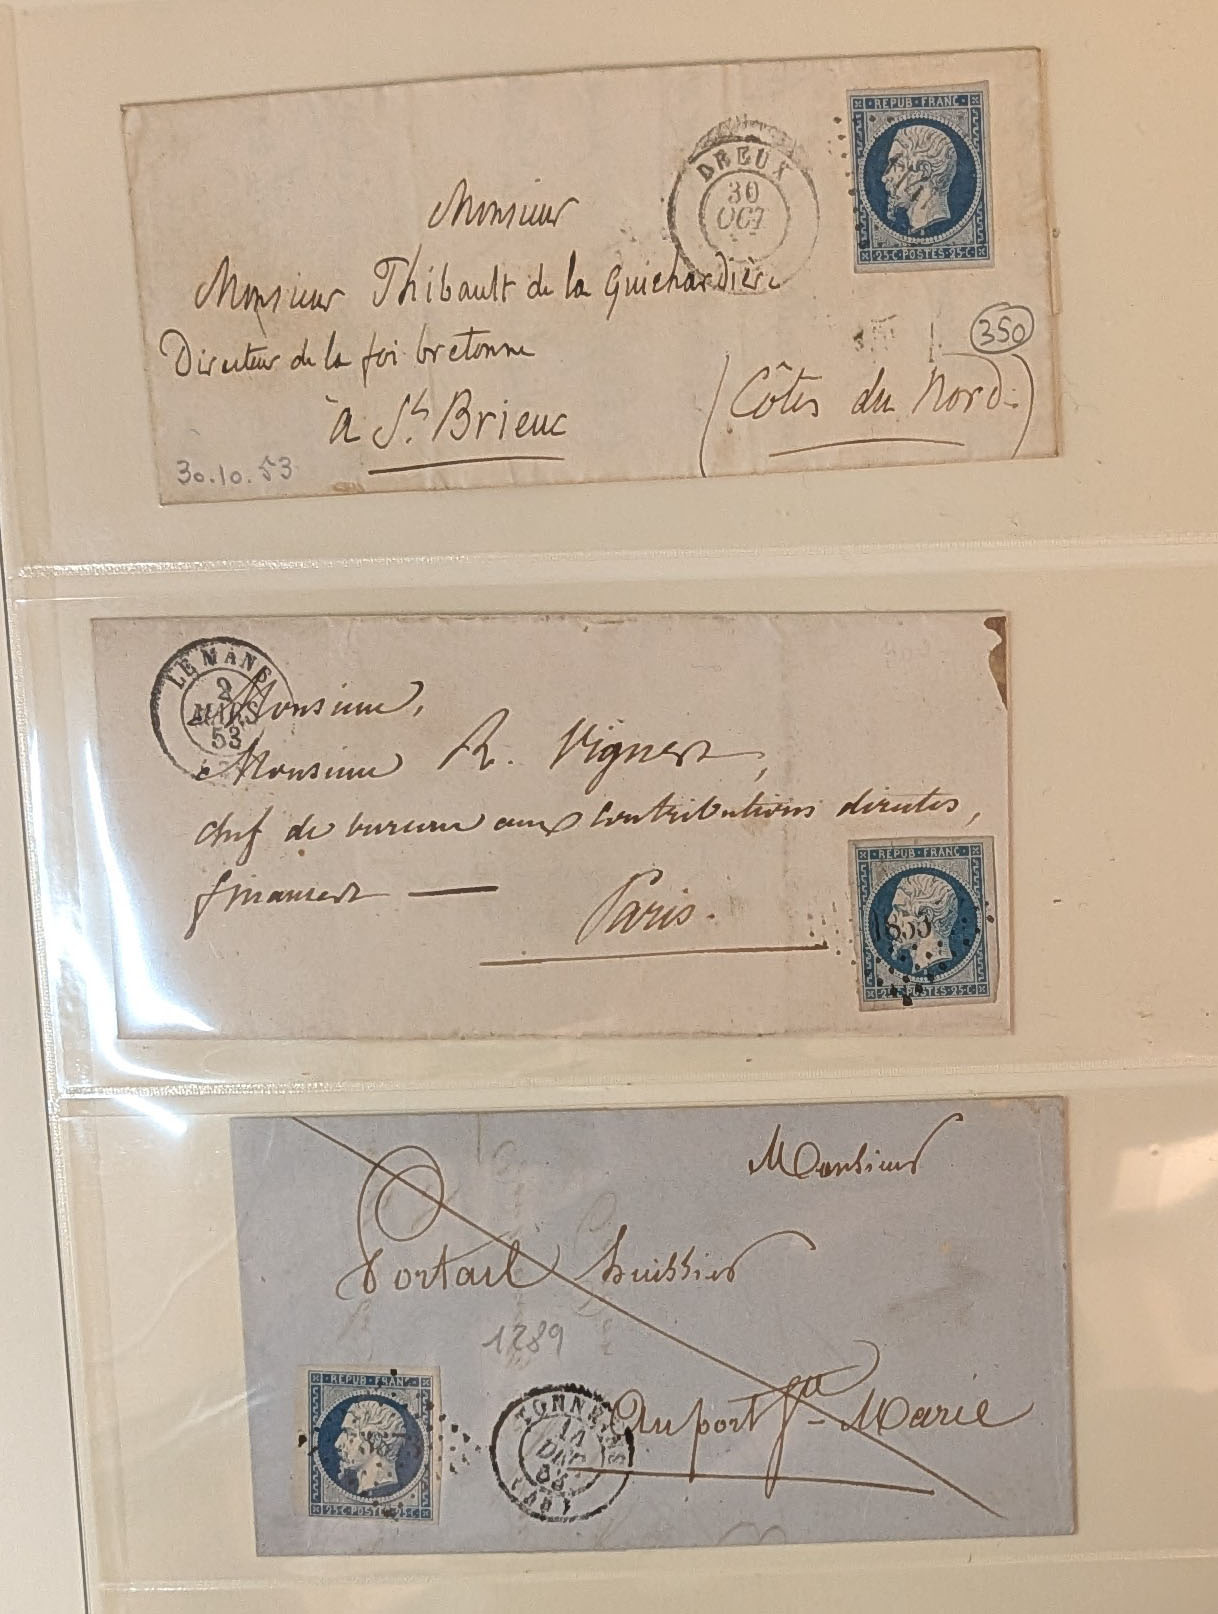 REPUB·FRANC·
DREUX
30
OCT
25·C·POSTES·25·C
Monsieur
Monsieur Thibault de la Guichardière
Directeur de la foi bretonne
à St. Brieuc
(Côtes du Nord.)
350
30.10.53
LE MANS
2
MARS
53
Monsieur,
Monsieur R. Vigners,
chef de bureau aux contributions directes,
finances —
Paris.
REPUB·FRANC·
1853
POSTES·25·C
Monsieur
Portail huissier
1289
Au port Ste-Marie
REPUB·FRANC
25·C·POSTES·25·C
TONNEINS
14
DEC